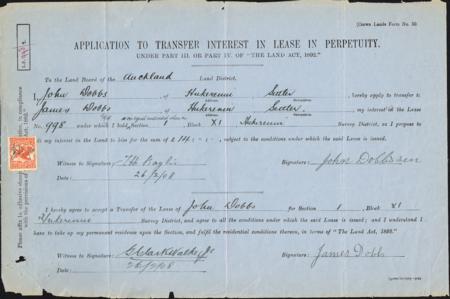 (Crown Lands Form No. 30)
APPLICATION TO TRANSFER INTEREST IN LEASE IN PERPETUITY,
UNDER PART III. OR PART IV. OF "THE LAND ACT, 1892."
To the Land Board of the Auckland Land District.
I, John Dobbs of Hukerenui Settler, hereby apply to transfer to
Address. Occupation.
James Dobbs of Hukerenui Settler, my interest in the Lease
Address. Occupation.
No. 998 under which I hold Section 1 Block XI Hukerenui Survey District, as I propose to
my interest in the Land to him for the sum of £14 : : , subject to the conditions under which the said lease is issued.
Witness to Signature: Signature: John Dobbs sen
Date: 26/2/08
I hereby agree to accept a Transfer of the Lease of John Dobbs for Section 1, Block XI
Hukerenui Survey District, and agree to all the conditions under which the said Lease is issued; and I understand I
have to take up my permanent residence upon the Section, and fulfil the residential conditions therein, in terms of "The Land Act, 1892."
Witness to Signature: Signature: James Dobbs
Date: 26/2/08